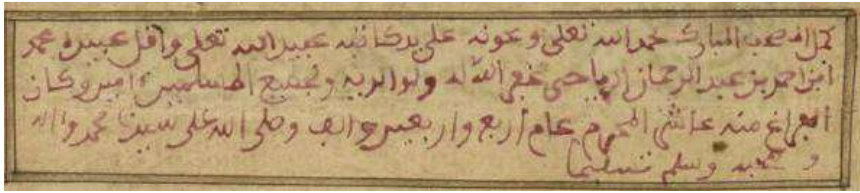 كمل المصحف المبارك بحمد الله تعلى وعونه على يد كاتبه عبيد الله تعلى وأقل عبيده محمد
ابن احمد بن عبد الرحمان الرياحي غفر الله له ولوالديه ولجميع المسلمين امين وكان
الفراغ منه عاشر المحرم عام أربع واربعين والف وصلى الله على سيدنا محمد واله
وصحبه وسلم تسليما